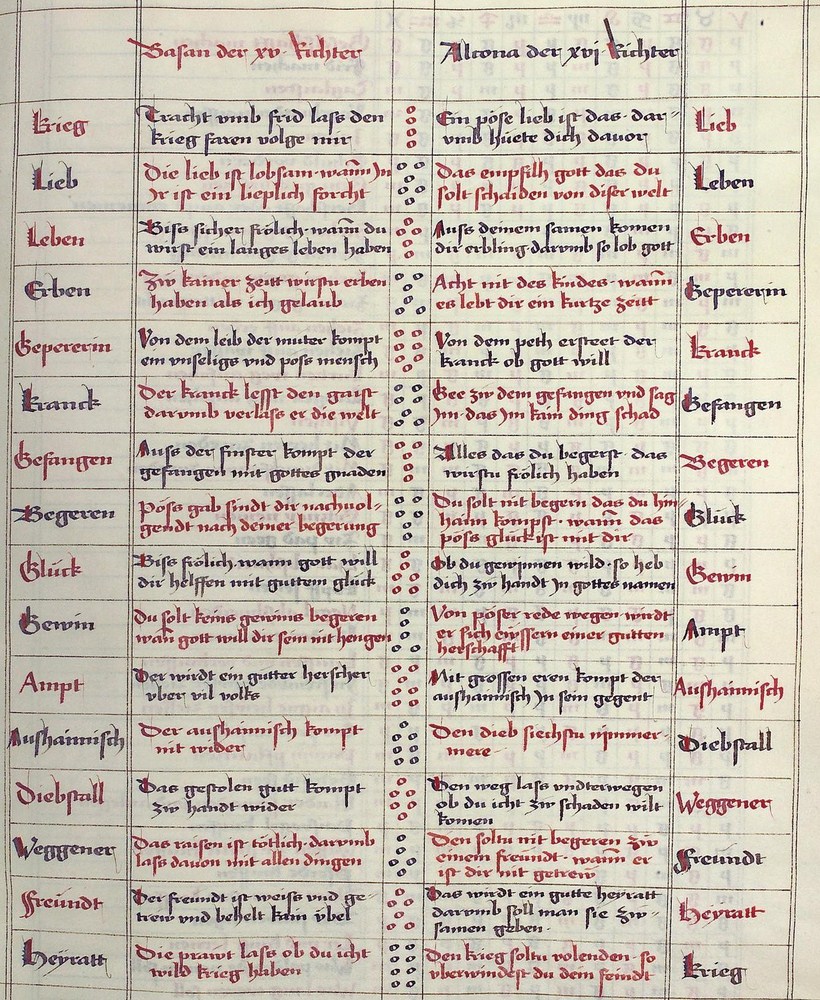 Basan der xv· Richter
Altona der xvj· Richter
Krieg
Tracht vmb frid lass den
krieg faren volge mir
Ein pöse lieb ist das· dar-
vmb hüete dich dauor
Lieb
Lieb
Die lieb ist lobsam· wann Jn
Jr ist ein lieplich forcht
Das empfilh gott das du
solt schaiden von diser welt
Leben
Leben
Biss sicher frölich· wann du
wirst ein langes leben haben
Auss deinem samen komen
dir erbling· darvmb so lob gott
Erben
Erben
Zw kainer zeitt wirstu erben
haben als ich gelaub
Acht nit des kindes· wann
es lebt dir ein kurtze zeitt
Gepererin
Gepererin
Von dem leib der muter kompt
ein vnseligs vnd poss mensch
Von dem peth ersteet der
kranck ob gott will
Kranck
Kranck
Der kranck lesst den gaist
darvmb verlass er die welt
Gee zw dem gefangen vnd sag
Jm· das Jm kain ding schad
Gefangen
Gefangen
Auss der finster kompt der
gefangen mit gottes gnaden
Alles das du begerst· das
wirstu frölich haben
Begeren
Begeren
Pöss gab sindt dir nachuol-
gendt nach deiner begerung
Du solt nit begern das du hin-
haim kompst· wann das
pöss glück ist mit dir
Glück
Glück
Biss frölich· wann gott will
dir helffen mit guttem glück
Ob du gewinnen wild· so heb
dich zw handt Jn gottes namen
Gewin
Gewin
Du solt keins gewins begeren
wan gott will dir sein nit hengen
Von pöser rede wegen· wirdt
er sich ewssern einer gutten
herschafft
Ampt
Ampt
Der wirdt ein gutter herscher
vber vil volks
Mit grossen eren kompt der
aushaimisch Jn sein gegent
Aushaimisch
Aushaimisch
Der aushaimisch kompt
nit wider
Den dieb siechstu nymmer-
mere
Diebstall
Diebstall
Das gestolen gutt kompt
zw handt wider
Den weg lass vndterwegen
ob du icht zw schaden wilt
komen
Weggener
Weggener
Das raisen ist tötlich· darvmb
lass dauon mit allen dingen
Den soltu nit begeren zw
einem freundt· wann er
ist dir nit getrew
Freundt
Freundt
Der freundt ist weiss vnd ge-
trew vnd behelt kain übel
Das wirdt ein gutte heyratt
darvmb soll man sie zw-
samen geben·
Heyratt
Heyratt
Die prawt lass ob du icht
wild krieg haben
Den krieg soltu volenden· so
vberwindest du dein feindt
Krieg